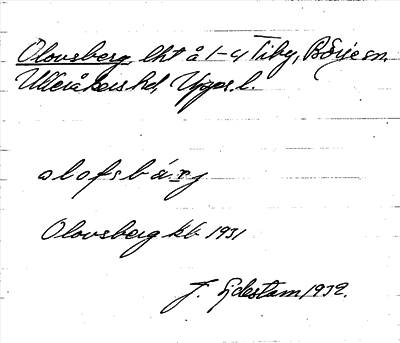 Olovsberg, lht å 1-4 Tiby, Börje sn,
Ulleråkers hd, Upps. l.
olofsbærj
Olovsberg kb 1931
J. Sjdestam 1932.